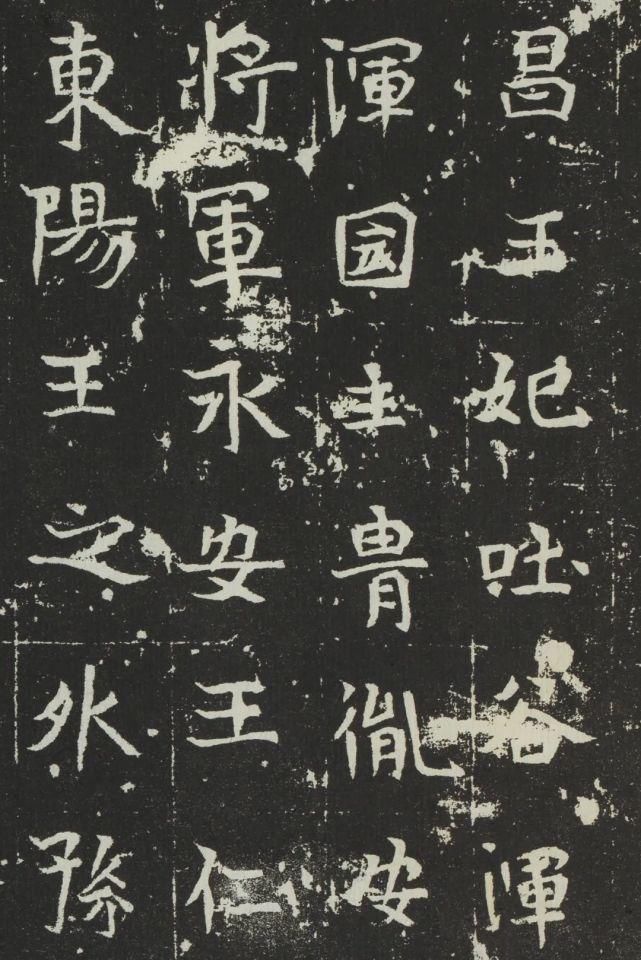 昌王妃吐谷渾
渾国主胄胤安
將軍永安王仁
東陽王之外孫